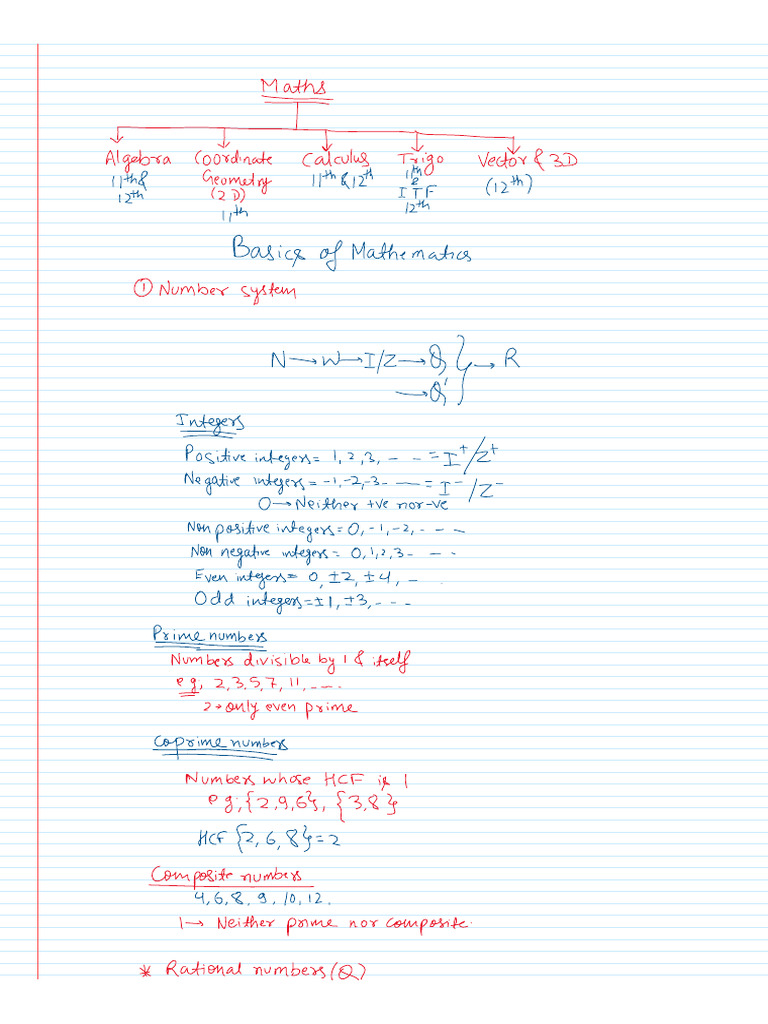 Maths
Algebra Coordinate Calculus Trigo Vector & 3D
11th & Geometry 11th & 12th 11th (12th)
12th (2D) & ITF
11th 12th
Basics of Mathematics
① Number system
N → W → I/Z → Q } → R
→ Q'
Integers
Positive integers = 1, 2, 3, - -- = I⁺/Z⁺
Negative integers = -1, -2, -3- -- = I⁻/Z⁻
0 → Neither +ve nor -ve
Non positive integers = 0, -1, -2, - - -
Non negative integers = 0, 1, 2, 3 - - - -
Even integers = 0, ±2, ±4, - .
Odd integers = ±1, ±3, - - -
Prime numbers
Numbers divisible by 1 & itself
eg, 2, 3, 5, 7, 11, -- --.
2 → only even prime
Coprime numbers
Numbers whose HCF is 1
eg, {2, 9, 6}, {3, 8}
HCF {2, 6, 8} = 2
Composite numbers
4, 6, 8, 9, 10, 12.
1 → Neither prime nor composite.
* Rational numbers (Q)